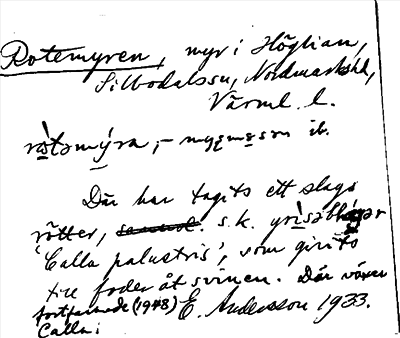 Rotemyren, myr i Höglian,
Silbodals sn, Nordmarks hd,
Värml. l.
rotəmýra, – myrməsərn ib.
Där har tagits ett slags
rötter, s. k. grisəblägər
'Calla palustris', som givits
till foder åt svinen. Där växer
fortfarande (1948) E. Andersson 1933.
Calla: